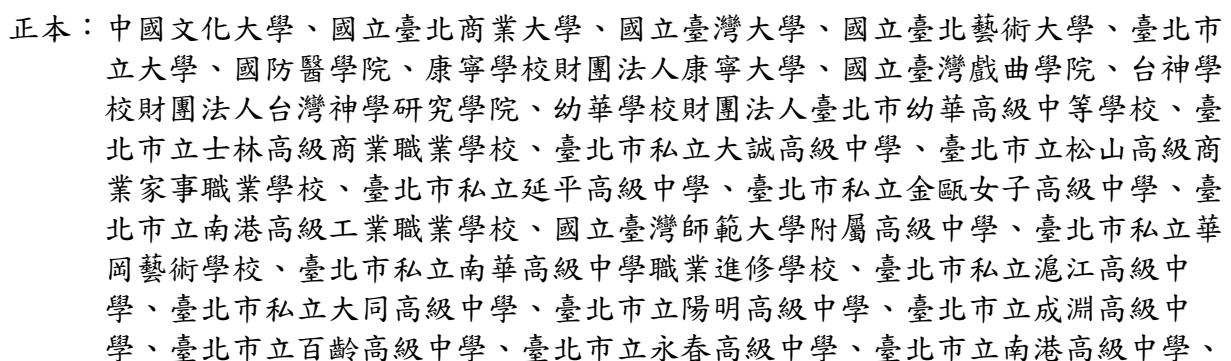 正本：中國文化大學、國立臺北商業大學、國立臺灣大學、國立臺北藝術大學、臺北市
立大學、國防醫學院、康寧學校財團法人康寧大學、國立臺灣戲曲學院、台神學
校財團法人台灣神學研究學院、幼華學校財團法人臺北市幼華高級中等學校、臺
北市立士林高級商業職業學校、臺北市私立大誠高級中學、臺北市立松山高級商
業家事職業學校、臺北市私立延平高級中學、臺北市私立金甌女子高級中學、臺
北市立南港高級工業職業學校、國立臺灣師範大學附屬高級中學、臺北市私立華
岡藝術學校、臺北市私立南華高級中學職業進修學校、臺北市私立滬江高級中
學、臺北市私立大同高級中學、臺北市立陽明高級中學、臺北市立成淵高級中
學、臺北市立百齡高級中學、臺北市立永春高級中學、臺北市立南港高級中學、